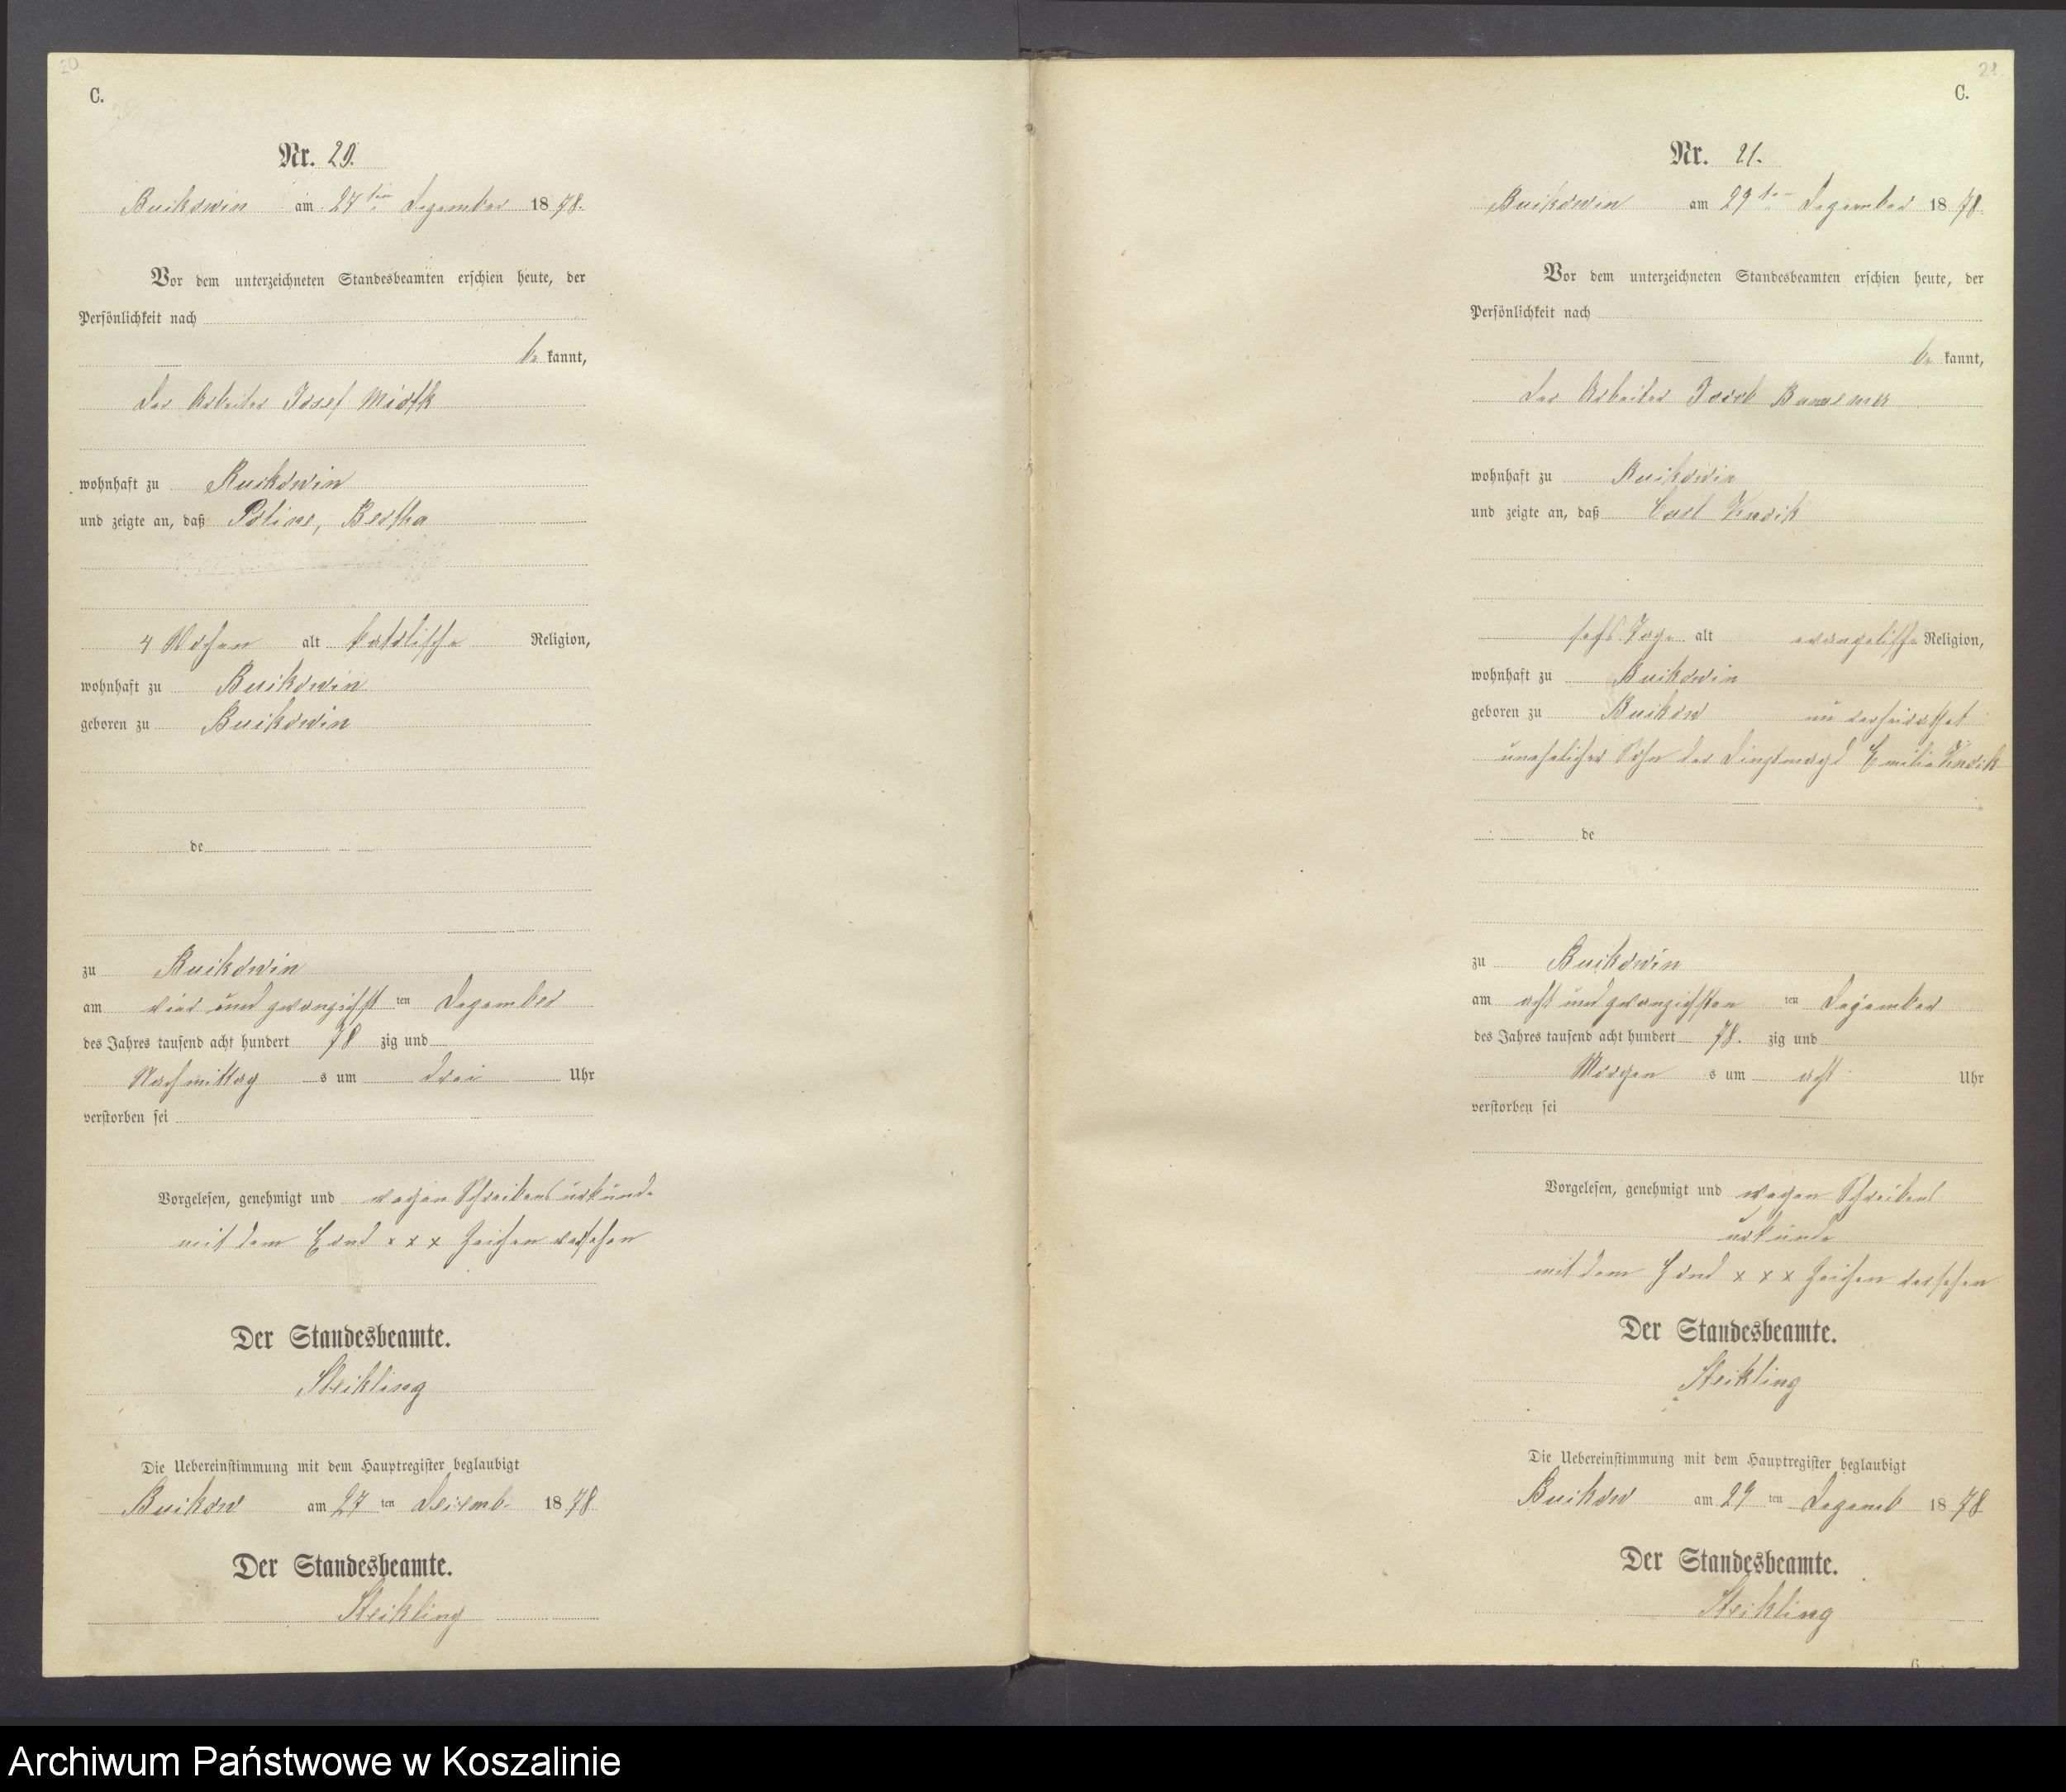 20.
C.
Nr. 20.
Buckowin am 27ten Dezember 1878.
Vor dem unterzeichneten Standesbeamten erschien heute, der
Persönlichkeit nach
be kannt,
der Arbeiter Josef
wohnhaft zu Buckowin
und zeigte an, daß Poline, Bertha
4 Wochen alt katolische Religion,
wohnhaft zu Buckowin
geboren zu Buckowin
de
zu Buckowin
am vier und zwanzigst ten Dezember
des Jahres tausend acht hundert 78 zig und
Nachmittag s um drei Uhr
verstorben sei
Vorgelesen, genehmigt und wegen Schreibens unkunde
mit dem Hand x x x Zeichen versehen
Der Standesbeamte.
Steikling
Die Uebereinstimmung mit dem Hauptregister beglaubigt
Buckow am 27 ten Decemb. 1878
Der Standesbeamte.
Steikling
21.
C.
Nr. 21.
Buckowin am 29ten Dezember 1878
Vor dem unterzeichneten Standesbeamten erschien heute, der
Persönlichkeit nach
be kannt,
der Arbeiter
wohnhaft zu Buckowin
und zeigte an, daß Carl
sechs Tage alt evangelische Religion,
wohnhaft zu Buckowin
geboren zu Buckow un verheirathet
unehelicher Sohn der Dienstmagd Emilie
de
zu Buckowin
am acht und zwanzigsten ten Dezember
des Jahres tausend acht hundert 78. zig und
Morgen s um acht Uhr
verstorben sei
Vorgelesen, genehmigt und wegen Schreibens
unkunde
mit dem Hand x x x Zeichen versehen
Der Standesbeamte.
Steikling
Die Uebereinstimmung mit dem Hauptregister beglaubigt
Buckow am 29 ten Dezemb 1878
Der Standesbeamte.
Steikling
6
Archiwum Państwowe w Koszalinie